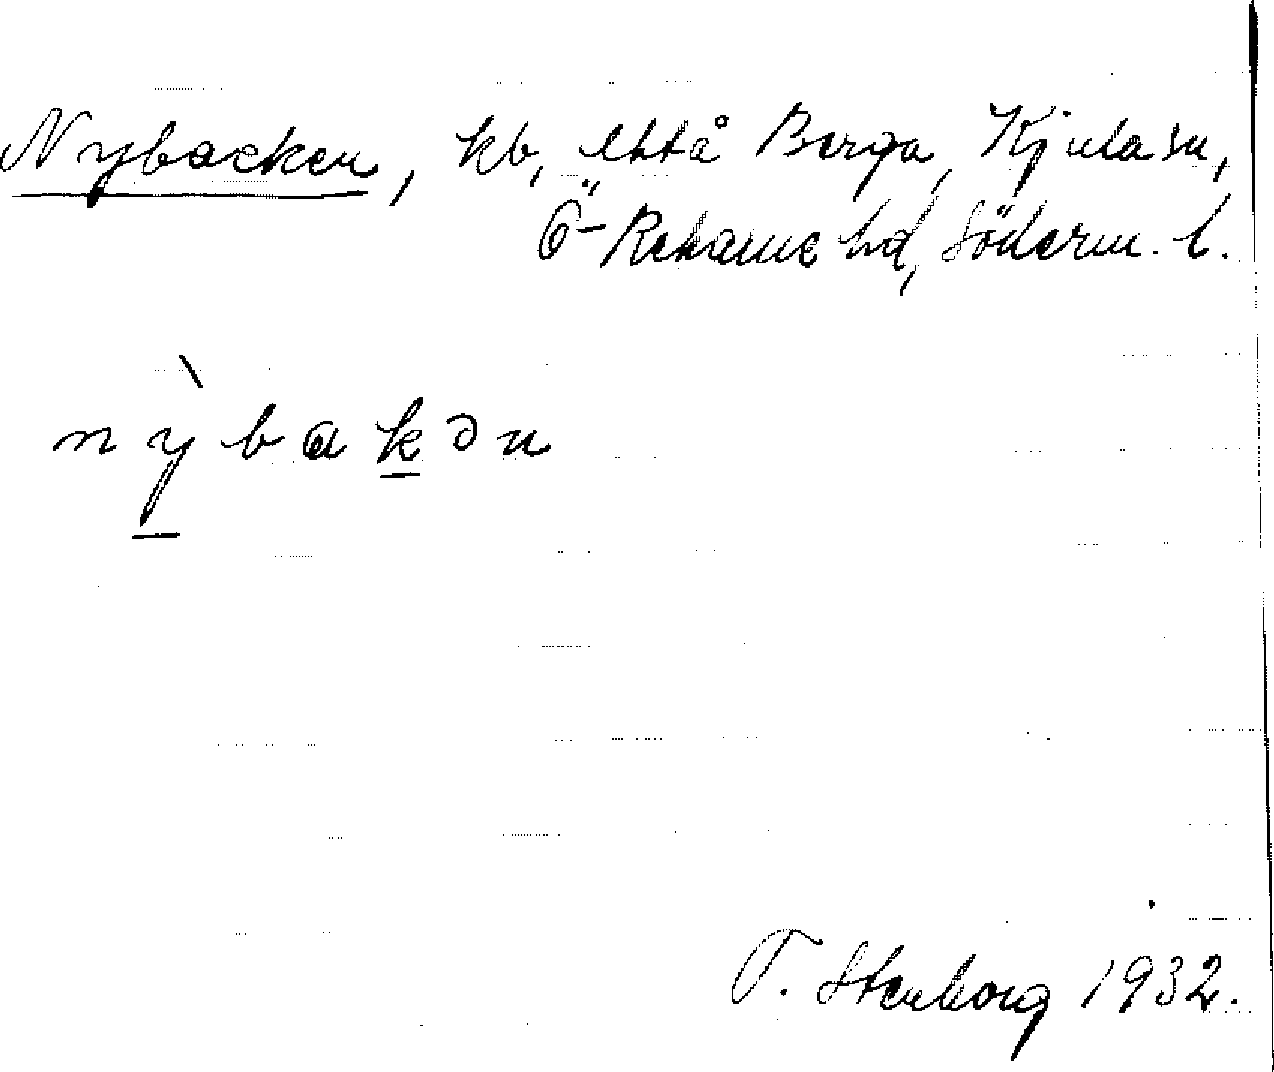 Nybacken, kb, Berga, Kjula sn,
Ö-Rekarne hd, Söderm. l.
nỳbakən
T. Stenborg 1932.